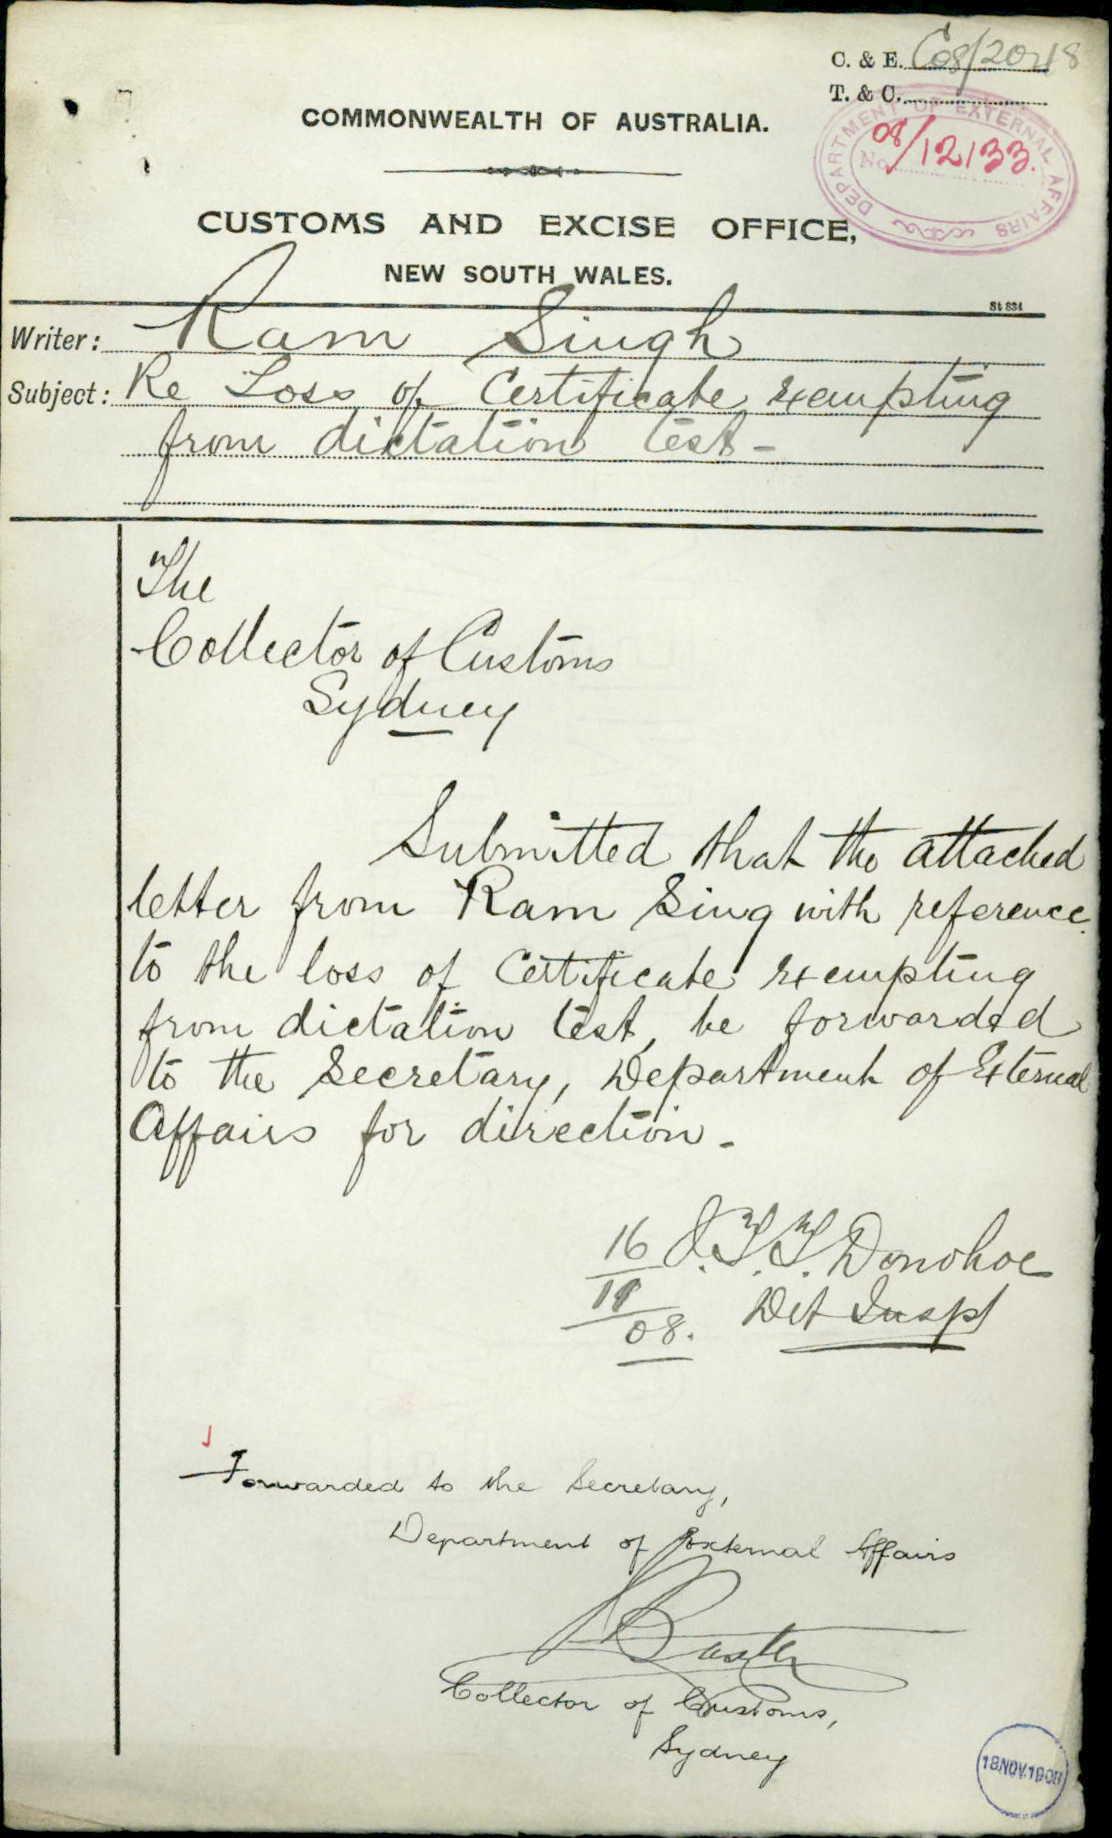 C. & E. C08/20218
T. & C.
DEPARTMENT OF EXTERNAL AFFAIRS
No. 08/12133.
COMMONWEALTH OF AUSTRALIA.
CUSTOMS AND EXCISE OFFICE,
NEW SOUTH WALES.
St 834
Writer: Ram Singh
Subject: Re Loss of Certificate exempting
from dictation test -
The
Collector of Customs
Sydney
Submitted that the attached
letter from Ram Sing with reference
to the loss of Certificate exempting
from dictation test, be forwarded
to the Secretary, Department of External
Affairs for direction. -
16 J.T.T. Donohoe
11 Det Inspr
08.
Forwarded to the Secretary,
Department of External Affairs
Baxter
Collector of Customs,
Sydney
18 NOV. 1908